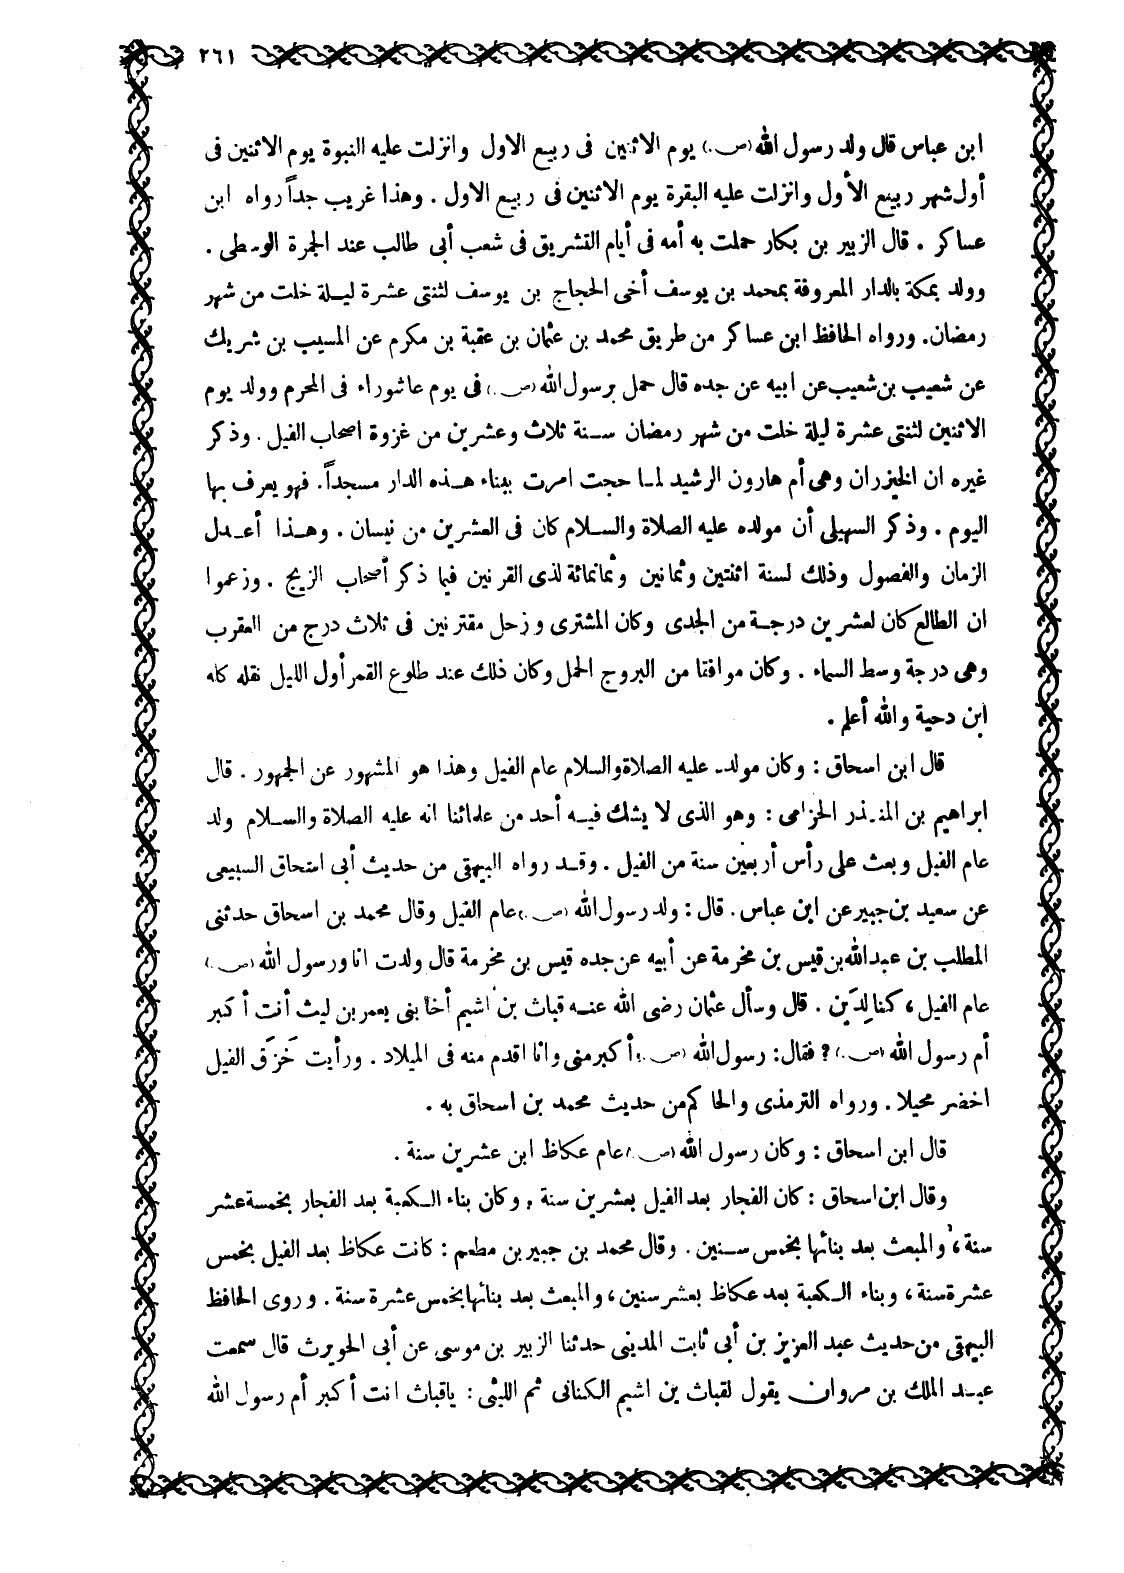 ٢٦١
ابن عباس قال ولد رسول الله (ص) يوم الاثنين فى ربيع الاول وانزلت عليه النبوة يوم الاثنين فى
أول شهر ربيع الأول وانزلت عليه البقرة يوم الاثنين فى ربيع الاول . وهذا غريب جداً رواه ابن
عساكر . قال الزبير بن بكار حملت به أمه فى أيام التشريق فى شعب أبى طالب عند الجمرة الوسطى .
وولد بمكة بالدار المعروفة بمحمد بن يوسف أخى الحجاج بن يوسف لثنتى عشرة ليلة خلت من شهر
رمضان. ورواه الحافظ ابن عساكر من طريق محمد بن عثمان بن عقبة بن مكرم عن المسيب بن شريك
عن شعيب بن شعيب عن ابيه عن جده قال حمل برسول الله (ص) فى يوم عاشوراء فى المحرم وولد يوم
الاثنين لثنتى عشرة ليلة خلت من شهر رمضان سنة ثلاث وعشرين من غزوة اصحاب الفيل . وذكر
غيره ان الخيزران وهى أم هارون الرشيد لما حجت امرت ببناء هذه الدار مسجداً. فهو يعرف بها
اليوم . وذكر السهيلى أن مولده عليه الصلاة والسلام كان فى العشرين من نيسان . وهذا أعدل
الزمان والفصول وذلك لسنة اثنتين وثمانين وثمانمائة لذى القرنين فيما ذكر أصحاب الزيج . وزعموا
ان الطالع كان لعشرين درجة من الجدى وكان المشترى وزحل مقترنين فى ثلاث درج من العقرب
وهى درجة وسط السماء . وكان موافقا من البروج الحمل وكان ذلك عند طلوع القمر أول الليل نقله كله
ابن دحية والله أعلم .
قال ابن اسحاق : وكان مولده عليه الصلاة والسلام عام الفيل وهذا هو المشهور عن الجمهور . قال
ابراهيم بن المنذر الحزامى : وهو الذى لا يشك فيه أحد من علمائنا انه عليه الصلاة والسلام ولد
عام الفيل وبعث على رأس أربعين سنة من الفيل . وقد رواه البيهقى من حديث أبى اسحاق السبيعى
عن سعيد بن جبير عن ابن عباس. قال : ولد رسول الله (ص) عام الفيل وقال محمد بن اسحاق حدثنى
المطلب بن عبد الله بن قيس بن مخرمة عن أبيه عن جده قيس بن مخرمة قال ولدت انا ورسول الله (ص)
عام الفيل ، كنا لِدَين . قال وسأل عثمان رضى الله عنه قباث بن اشيم أخا بنى يعمر بن ليث أنت أكبر
أم رسول الله (ص) ? فقال: رسول الله (ص) أكبر منى وانا اقدم منه فى الميلاد . ورأيت خَزَق الفيل
اخضر محيلا . ورواه الترمذى والحاكم من حديث محمد بن اسحاق به .
قال ابن اسحاق : وكان رسول الله (ص) عام عكاظ ابن عشرين سنة .
وقال ابن اسحاق : كان الفجار بعد الفيل بعشرين سنة , وكان بناء الكعبة بعد الفجار بخمسة عشر
سنة ، والمبعث بعد بنائها بخمس سنين . وقال محمد بن جبير بن مطعم : كانت عكاظ بعد الفيل بخمس
عشرة سنة ، وبناء الكعبة بعد عكاظ بعشر سنين ، والمبعث بعد بنائها بخمس عشرة سنة . وروى الحافظ
البيهقى من حديث عبد العزيز بن أبى ثابت المدينى حدثنا الزبير بن موسى عن أبى الحويرث قال سمعت
عبد الملك بن مروان يقول لقباث بن اشيم الكنانى ثم الليثى : ياقباث انت أكبر أم رسول الله